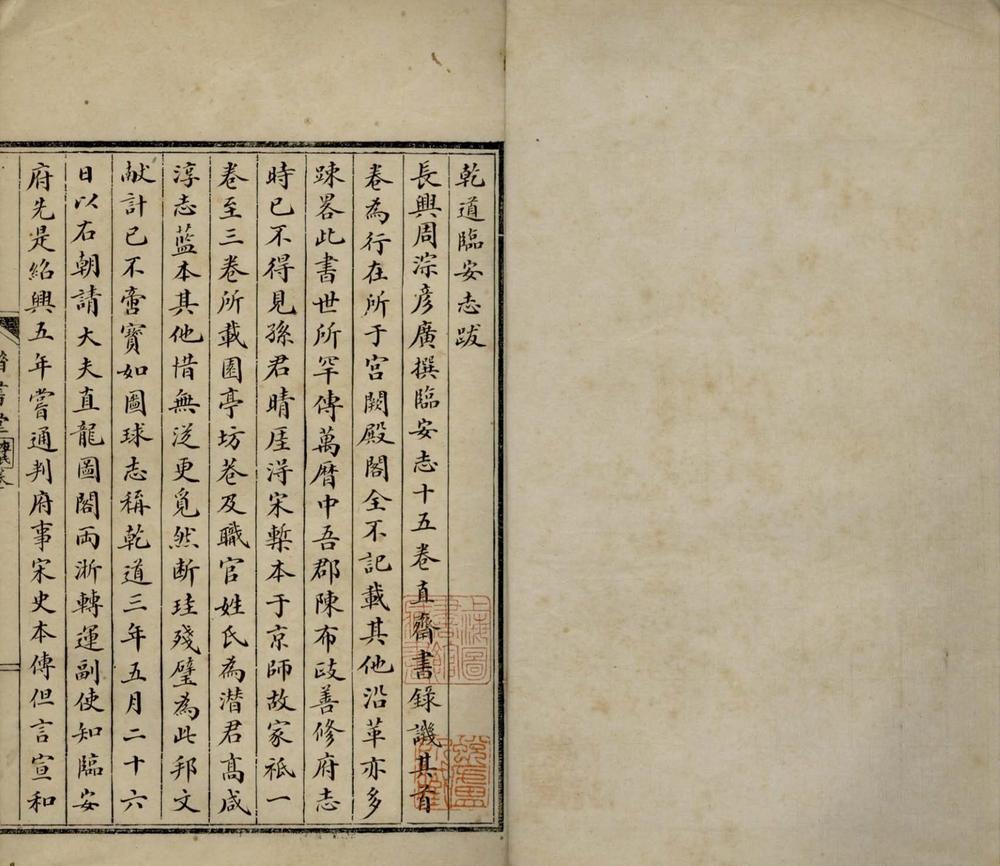 乾道臨安志跋
長興周淙彦廣撰臨安志十五卷直齋書録譏其首
卷為行在所于宫闕殿閣全不記載其他沿革亦多
踈畧此書世所罕傳萬曆中吾郡陳布政善修府志
時已不得見孫君晴厓淂宋槧本于京師故家祇一
卷至三卷所載園亭坊巷及職官姓氏為潛君髙咸
淳志藍本其他惜無従更覓然断珪殘璧為此邦文
献計已不啻寳如圖球志稱乾道三年五月二十六
日以右朝請大夫直龍圖閣兩浙轉運副使知臨安
府先是紹興五年嘗通判府事宋史本傳但言宣和
上海圖書館藏